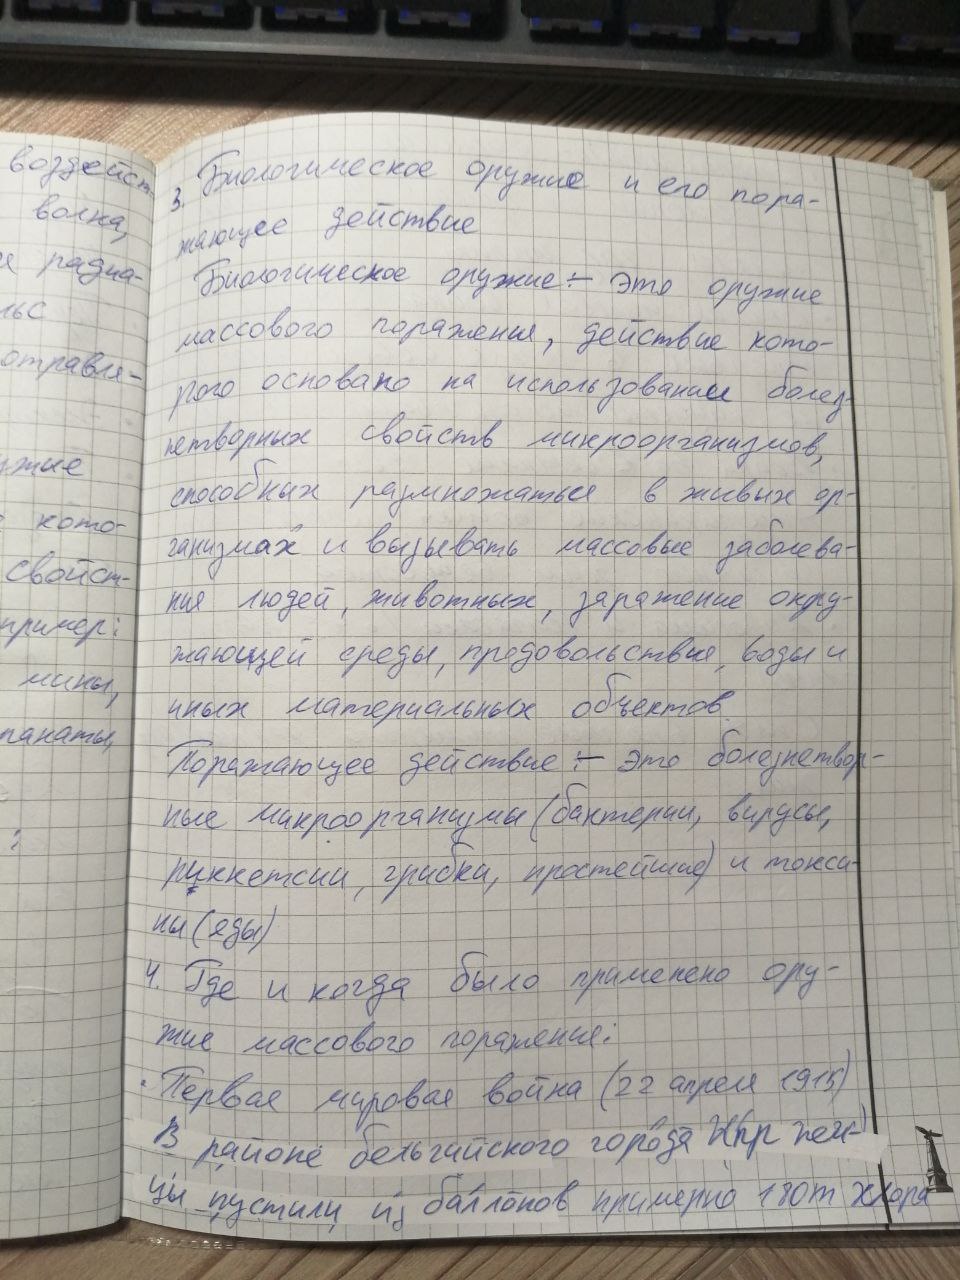 воздейст
волна,
радиа-
отравля-
кото-
свойст-
пример:
мины,
3. Биологическое оружие и его пора-
жающее действие
Биологическое оружие:- это оружие
массового поражения, действие кото-
рого основано на использовании болез-
нетворных свойств микроорганизмов,
способных размножаться в живых ор-
ганизмах и вызывать массовые заболева-
ния людей, животных, заражение окру-
жающей среды, продовольствия, воды и
иных материальных объектов.
Поражающее действие:- это болезнетвор-
ные микроорганизмы (бактерии, вирусы,
риккетсии, грибки, простейшие) и токси-
ны (яды)
4. Где и когда было применено ору-
жие массового поражения:
Первая мировая война (22 апреля 1915)
В районе бельгийского города нем-
цы пустили из баллонов примерно 180т хлора